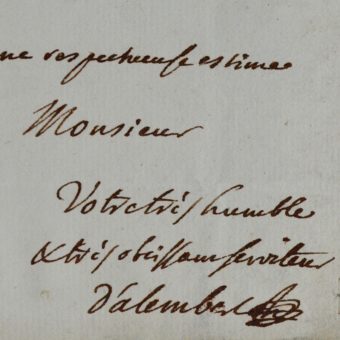 ne respectueuse estime
Monsieur
Votre très humble
& très obeissant serviteur
d'alembert